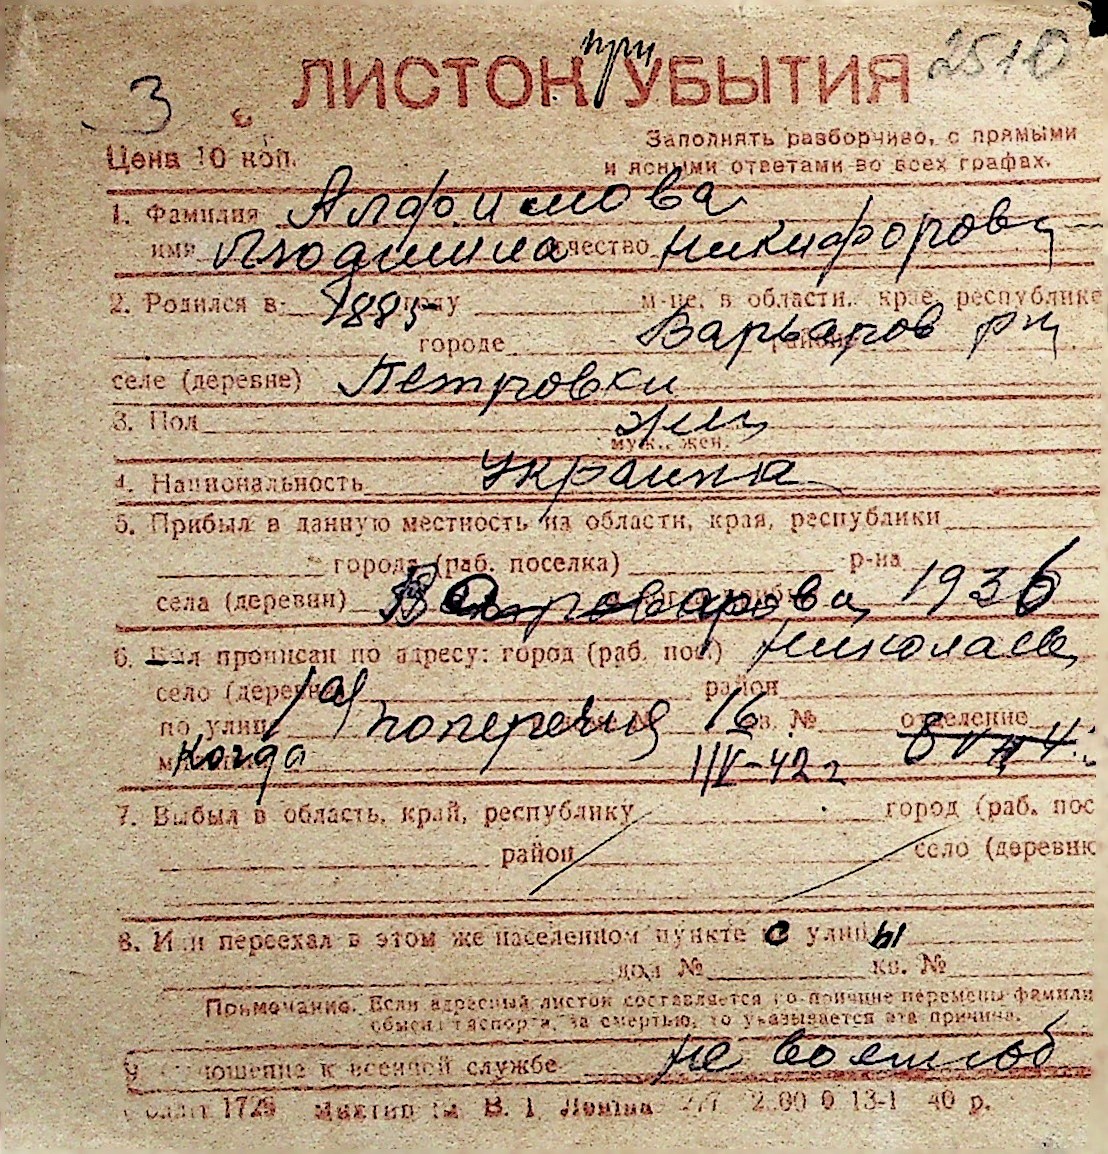 при
3 ЛИСТОК УБЫТИЯ 2510
Заполнять разборчиво, с прямыми
Цена 10 коп. и ясными ответами во всех графах.
1. Фамилия Алфимова
имя Людмила отчество Никифоровн
2. Родился в 1885 году м-це, в области, крае, республике
городе Варваров рн
селе (деревне) Петровки
3. Пол жен
муж., жен.
4. Национальность Украина
5. Прибыл в данную местность из области, края, республики
города (раб. поселка) р-на
села (деревни) 1936
6. Был прописан по адресу: город (раб. пос.) Николаев
село (деревне) район
по улице 1ая поперечная 16 кв. № отделение
Когда III/V-42 г
7. Выбыл в область, край, республику город (раб. пос
район село (деревню
8. Или переехал в этом же населенном пункте с улицы
дом № кв. №
Примечание. Если адресный листок составляется по причине перемены фамили
обмена паспорта, за смертью, то указывается эта причина.
9 отношение к военной службе не военнооб
1729 В. И. Ленина 13-1 40 р.